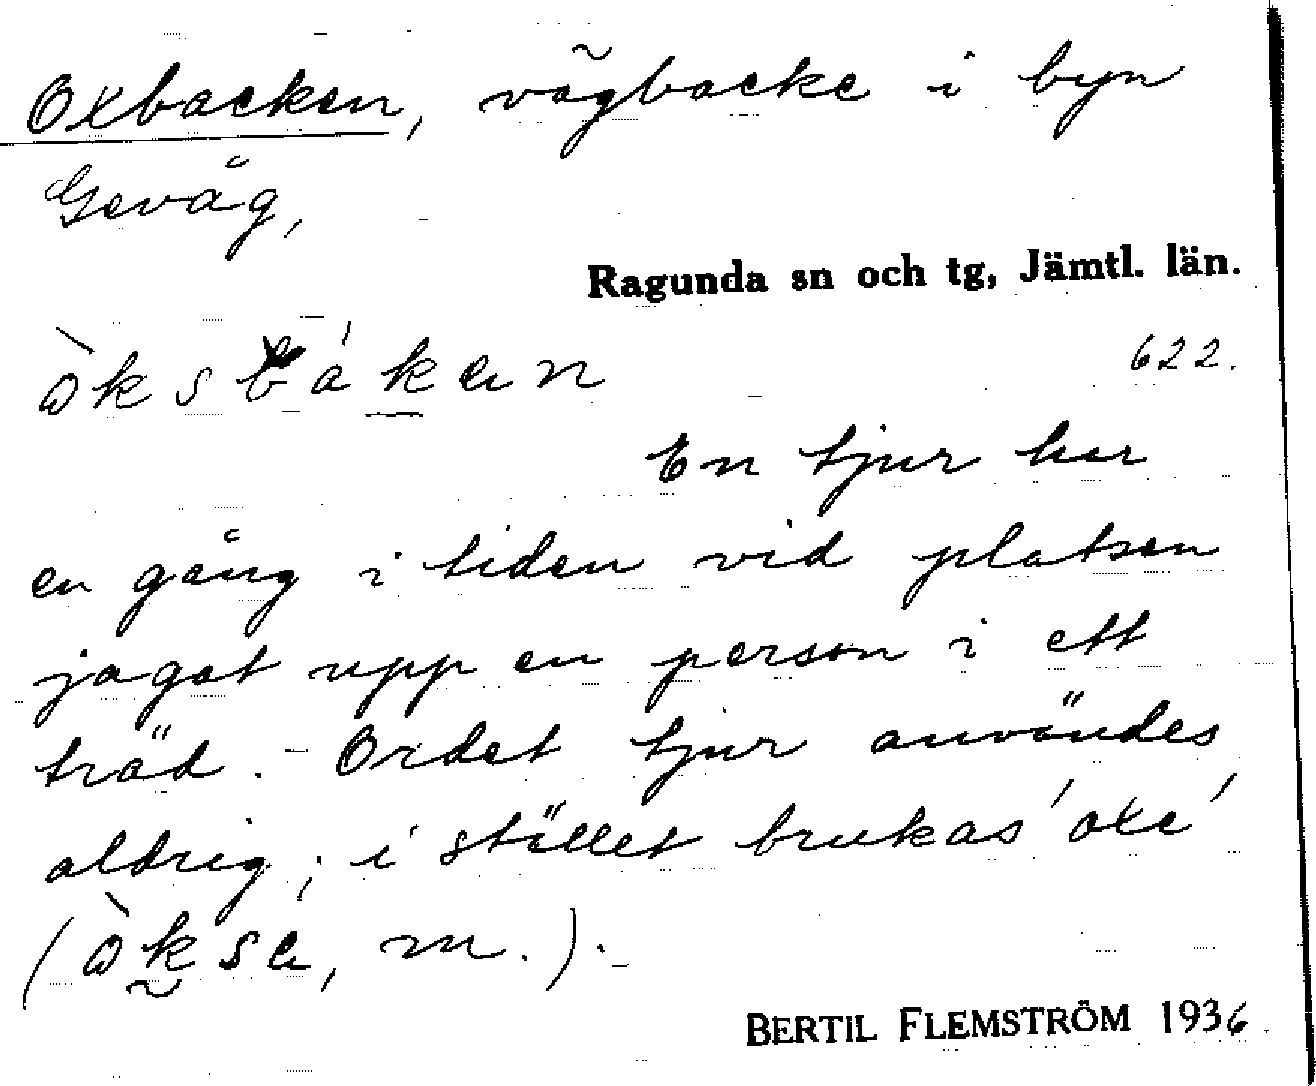 Oxbacken, vägbacke i byn
Gevåg,
Ragunda sn och tg, Jämtl. län.
622.
En tjur har
en gång i tiden vid platsen
jagat upp en person i ett
träd. - Ordet tjur användes
aldrig; i stället brukas 'oxe'
m.).
BERTIL FLEMSTRÖM 1936